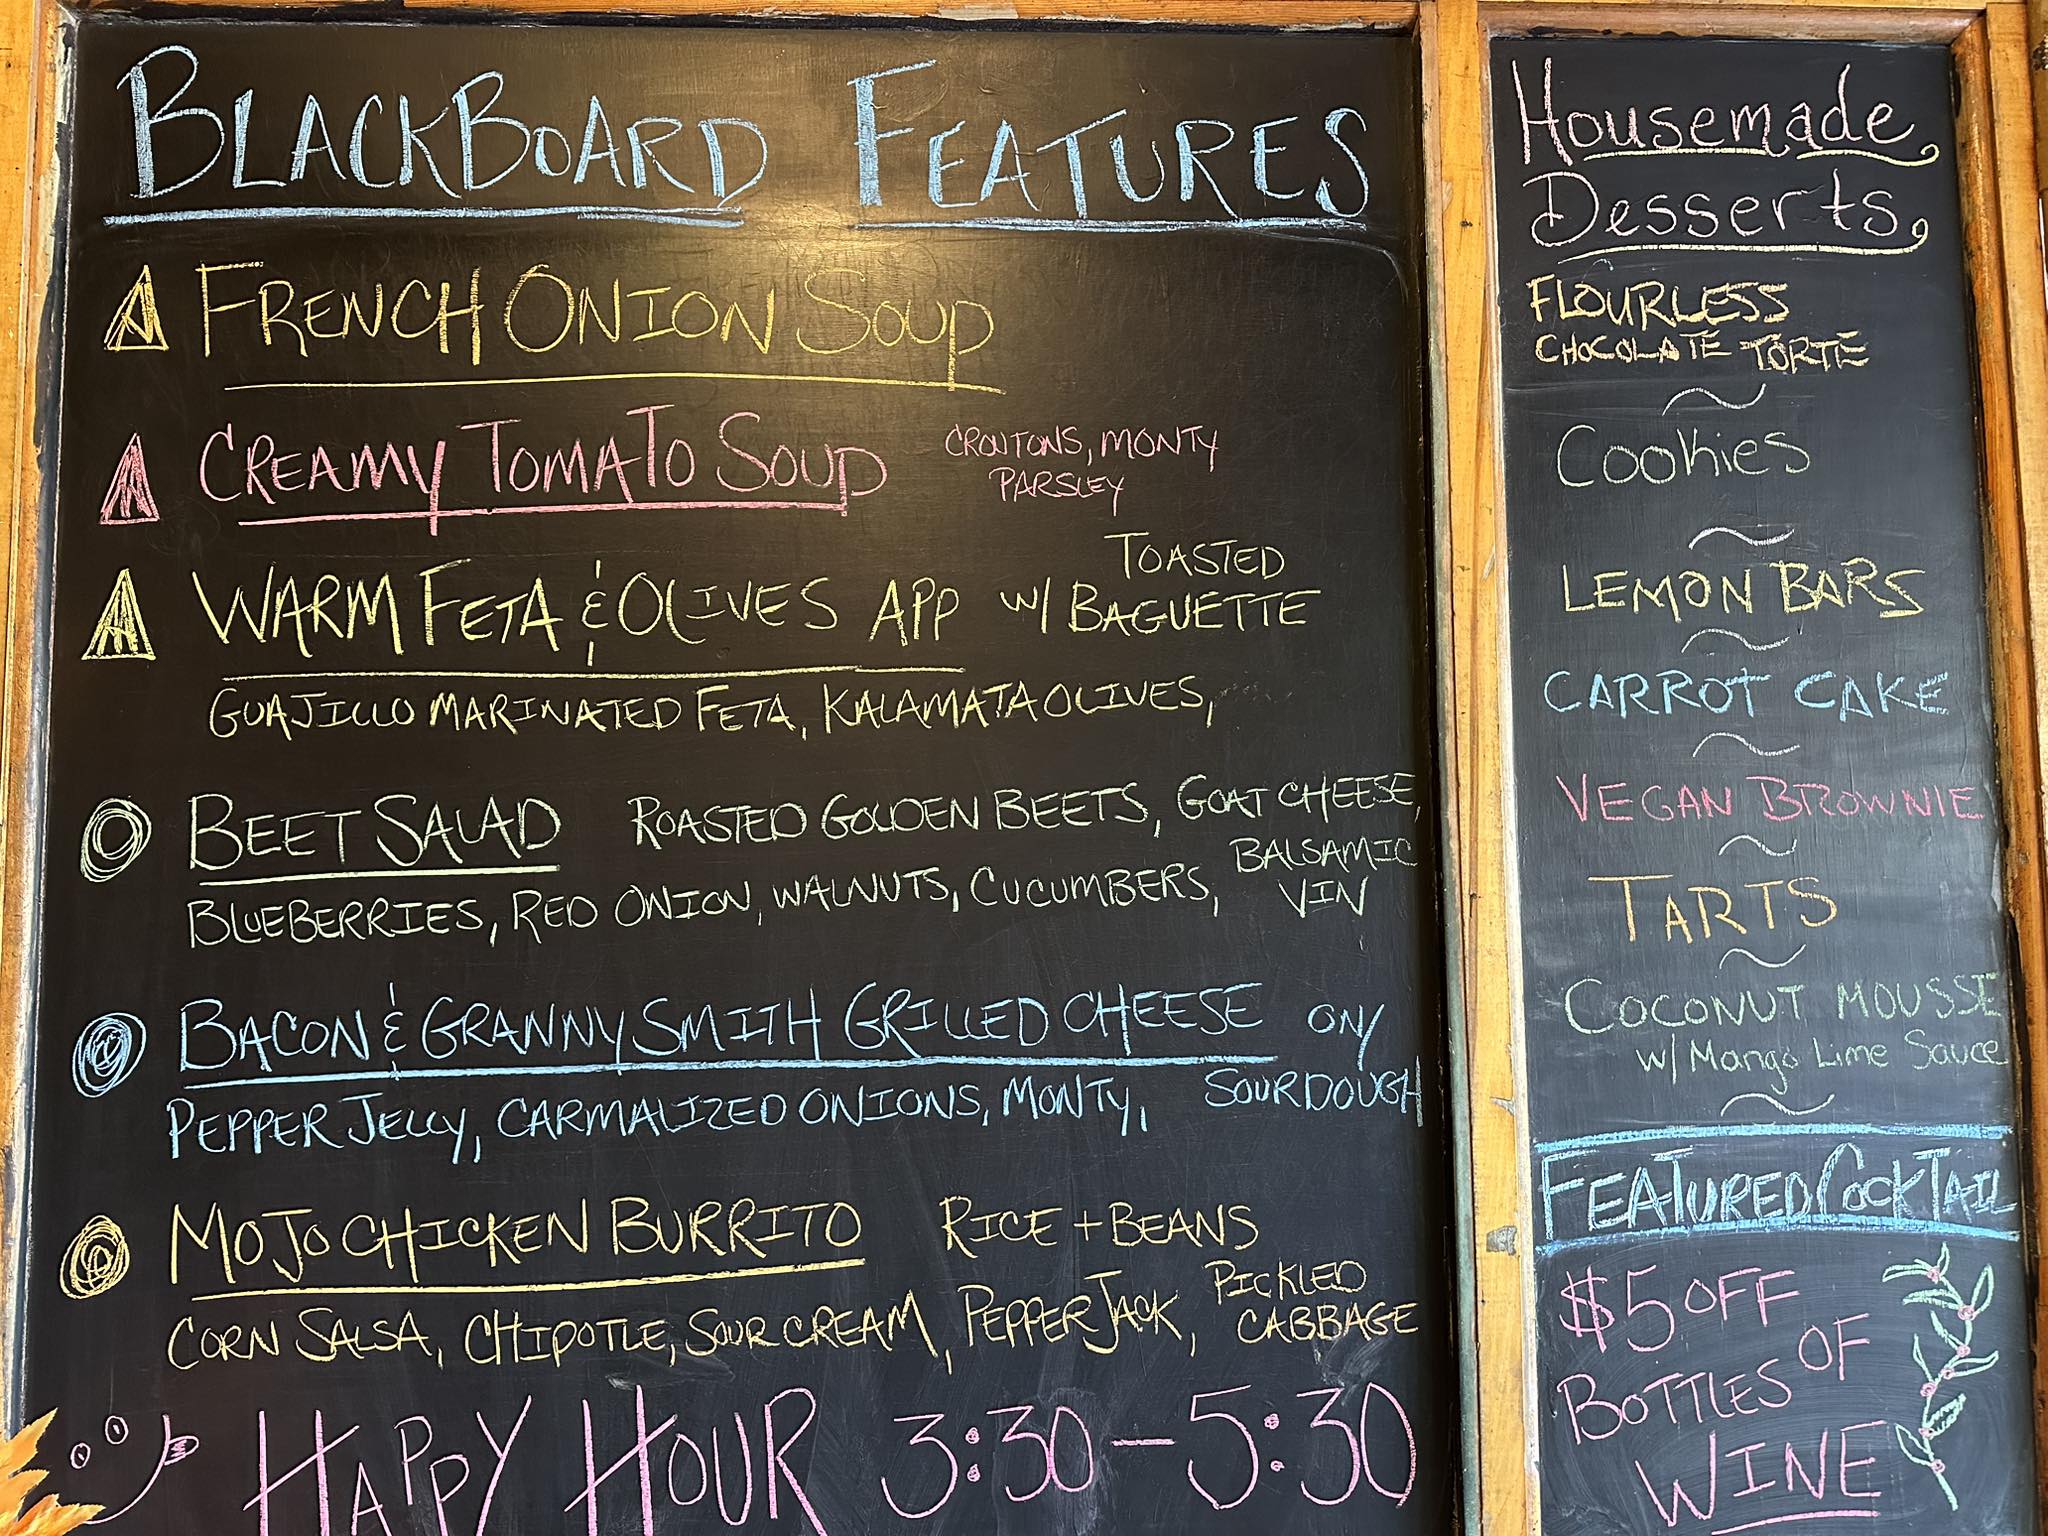 BLACKBOARD FEATURES
FRENCH ONION SOUP
CREAMY TOMATO SOUP
CROUTONS, MONTY
PARSLEY
WARM FETA & OLIVES APP W/ TOASTED
BAGUETTE
GUAJILLO MARINATED FETA, KALAMATA OLIVES,
BEET SALAD ROASTED GOLDEN BEETS, GOAT CHEESE,
BLUEBERRIES, RED ONION, WALNUTS, CUCUMBERS, BALSAMIC
VIN
BACON & GRANNY SMITH GRILLED CHEESE ON/
SOURDOUGH
PEPPER JELLY, CARMALIZED ONIONS, MONTY,
MOJO CHICKEN BURRITO RICE + BEANS
CORN SALSA, CHIPOTLE, SOUR CREAM, PEPPER JACK, PICKLED
CABBAGE
HAPPY HOUR 3:30-5:30
Housemade
Desserts
FLOURLESS
CHOCOLATE TORTE
Cookies
LEMON BARS
CARROT CAKE
VEGAN BROWNIE
TARTS
COCONUT MOUSSE
W/ Mango Lime Sauce
FEATURED COCKTAIL
$5 OFF
OF
BOTTLES
WINE